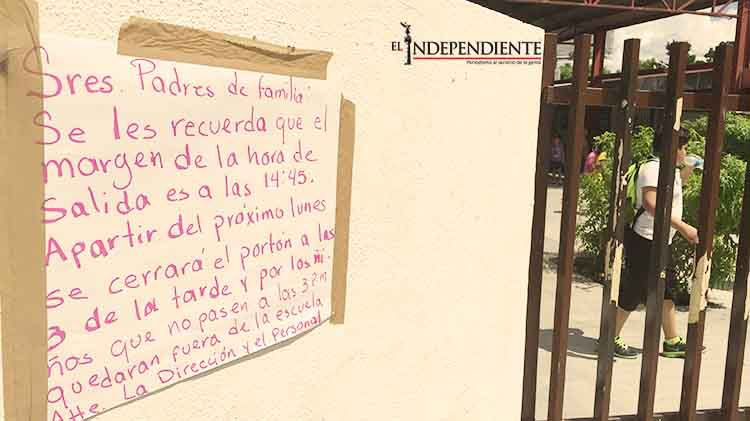 Sres. Padres de familia:
Se les recuerda que el
margen de la hora de
salida es a las 14:45.
Apartir del próximo lunes
se cerrará el portón a las
3 de la tarde y por los ni.
ños que no pasen a las 3 p.m
quedaran fuera de la escuela
Atte. La Dirección y el Personal
EL INDEPENDIENTE
Periodismo al servicio de la gente